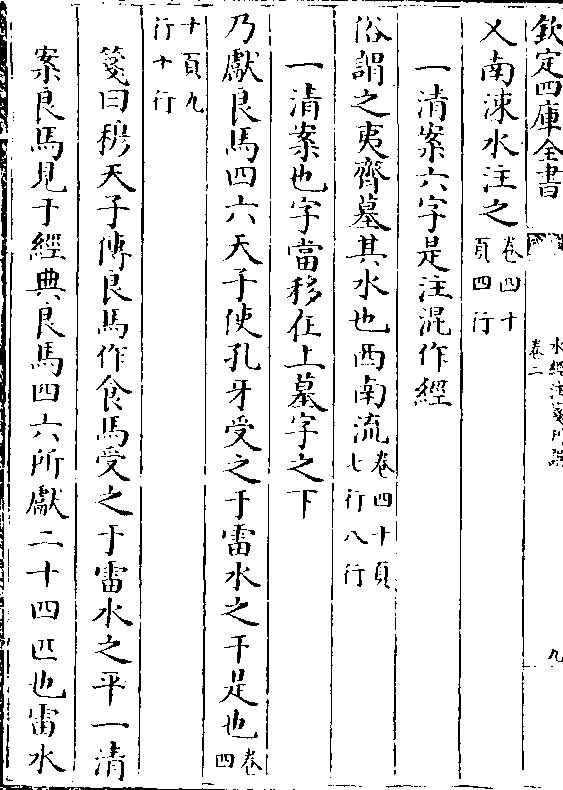 欽定四庫全書
水經注箋刊誤
卷二
九
又南涑水注之卷四十頁四行
一清案六字是注混作經
俗謂之夷齊墓其水也西南流卷四十頁七行八行
一清案也字當移在上墓字之下
乃獻良馬四六天子使孔牙受之于雷水之干是也卷四
十頁九行十行
箋曰穆天子傳良馬作食馬受之于雷水之平一清
案良馬見于經典良馬四六所獻二十四匹也雷水